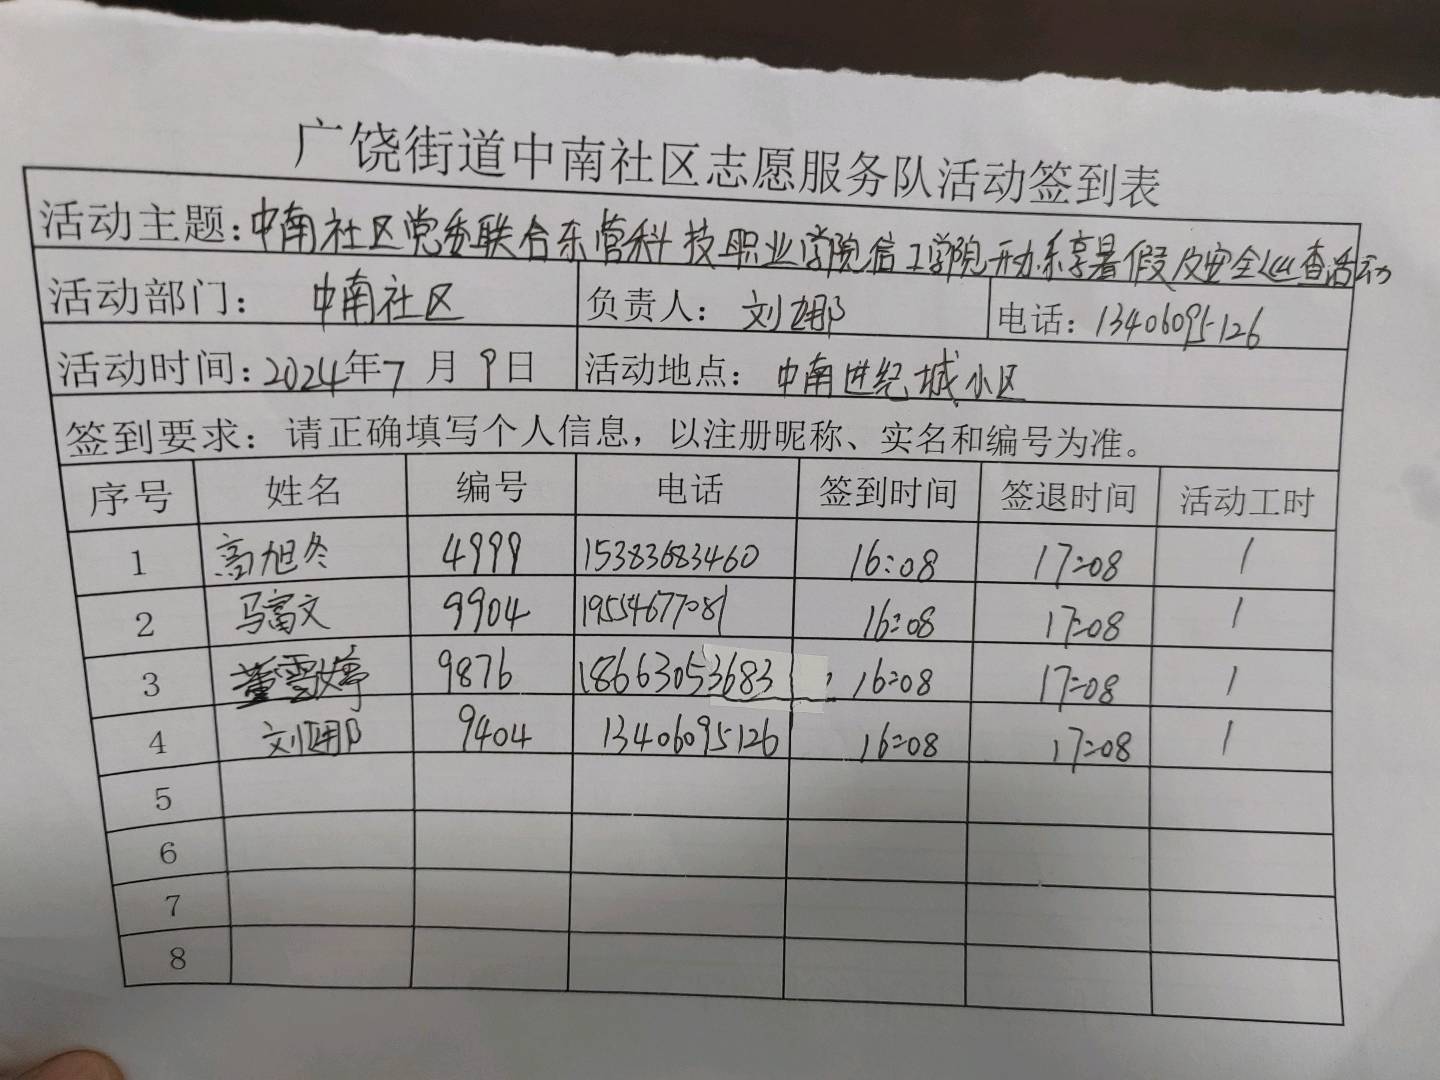 广饶街道中南社区志愿服务队活动签到表
活动主题:中南社区党委联合东营科技职业学院信工学院开动系享暑假及安全巡查活动
活动部门: 中南社区 负责人: 刘娜 电话:13406095126
活动时间:2024年7月9日 活动地点: 中南世纪城小区
签到要求: 请正确填写个人信息，以注册昵称、实名和编号为准。
序号 姓名 编号 电话 签到时间 签退时间 活动工时
1 高旭冬 4999 15383683460 16:08 17:08 1
2 马富文 9904 19554677081 16:08 17:08 1
3 董雲婷 9876 18663053683 16:08 17:08 1
4 刘娜 9404 13406095126 16:08 17:08 1
5
6
7
8